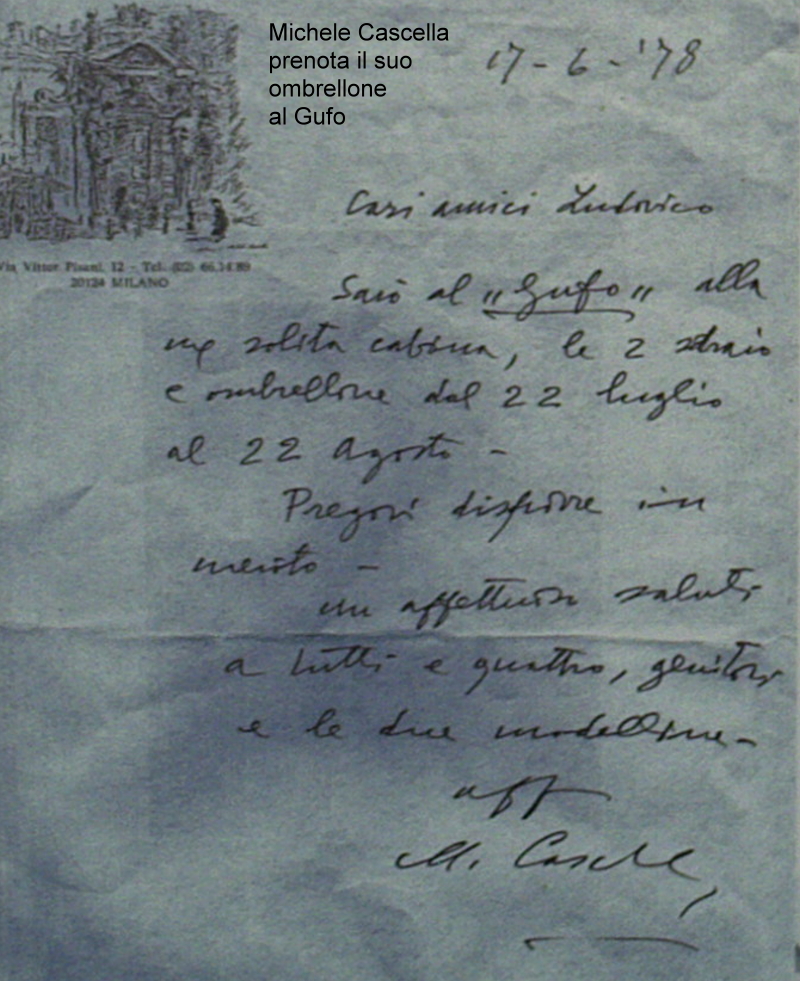 Michele Cascella
prenota il suo
ombrellone
al Gufo
17-6-'78
Cari amici Ludovico
Via Vittor Pisani, 12 - Tel. (02) 66.14.89
20124 MILANO
Sarò al "Gufo" alla
solita cabina, le 2 sdraio
e ombrellone dal 22 luglio
al 22 Agosto -
Pregovi disporre in
merito -
un affettuoso saluti
a tutti e quattro, genitori
e le due modelline -
aff
M. Cascella